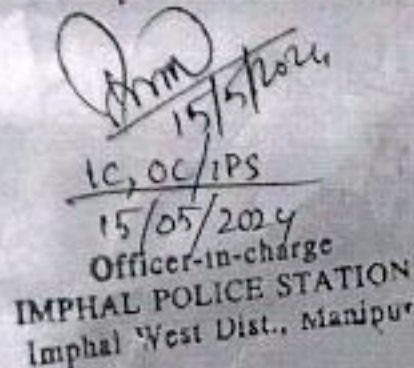 15/5/2024
IC, OC/IPS
15/05/2024
Officer-in-charge
IMPHAL POLICE STATION
Imphal West Dist., Manipur